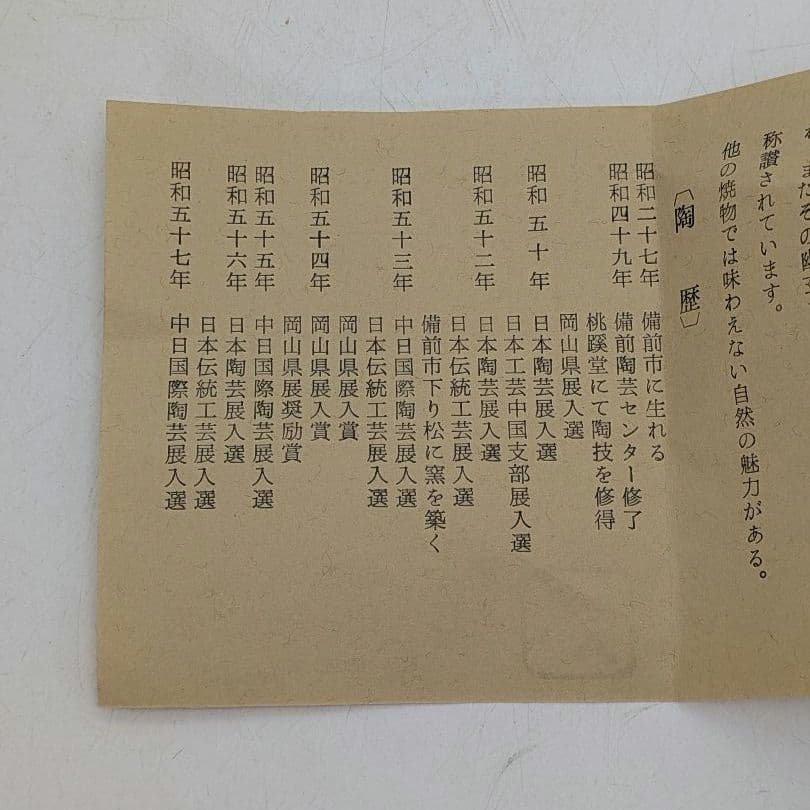 またその
称讃されています。
他の焼物では味わえない自然の魅力がある。
〔陶 歴〕
昭和二十七年 備前市に生れる
昭和四十九年 備前陶芸センター修了
桃蹊堂にて陶技を修得
岡山県展入選
昭和五十年 日本陶芸展入選
日本工芸中国支部展入選
昭和五十二年 日本陶芸展入選
日本伝統工芸展入選
備前市下り松に窯を築く
昭和五十三年 中日国際陶芸展入選
日本伝統工芸展入選
岡山県展入賞
昭和五十四年 岡山県展入賞
岡山県展奨励賞
昭和五十五年 中日国際陶芸展入選
昭和五十六年 日本陶芸展入選
日本伝統工芸展入選
昭和五十七年 中日国際陶芸展入選